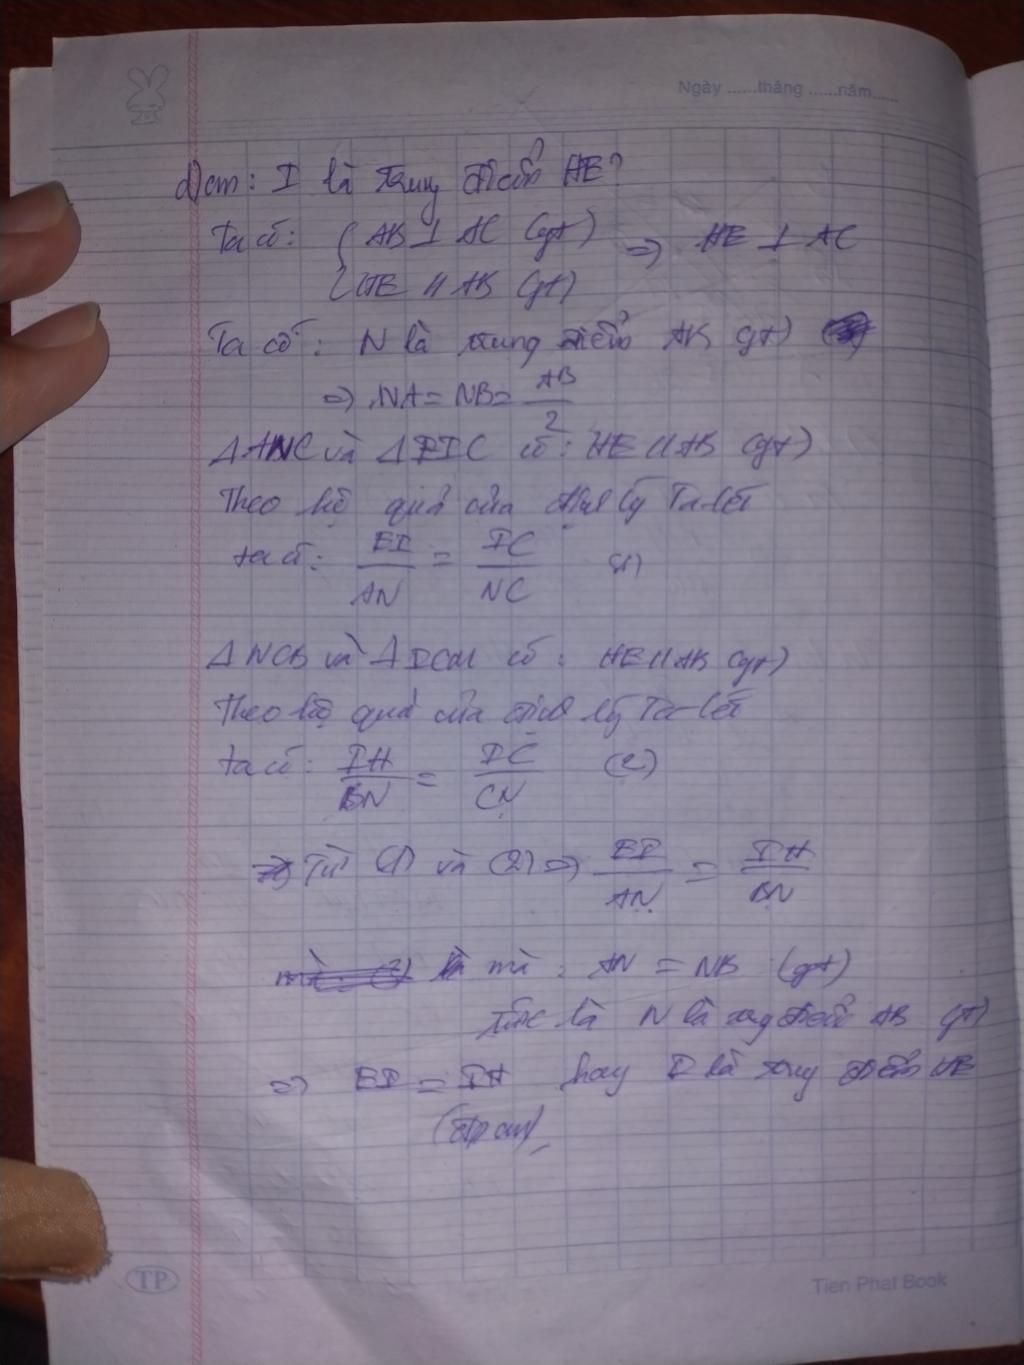 Ngày ......tháng ......năm......
d) cm: I là trung điểm HE?
Ta có: { AB ⊥ AC (gt) => HE ⊥ AC
{ HE // AB (gt)
Ta có: N là trung điểm AB (gt)
=> NA = NB = AB/2
Δ ANC và Δ EIC có: HE // AB (gt)
Theo hệ quả của định lý Ta-lét
ta có: EI/AN = IC/NC (1)
Δ NCB và Δ ICH có: HE // AB (gt)
Theo hệ quả của định lý Ta-lét
ta có: IH/BN = IC/CN (2)
Từ (1) và (2) => EI/AN = IH/BN
mà: AN = NB (gt)
Tức là N là trung điểm AB (gt)
=> EI = IH hay I là trung điểm HE
(đpcm)
TP
Tien Phat Book